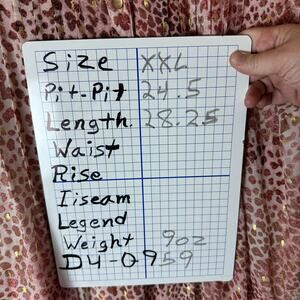 Size XXL
Pit-Pit 24.5
Length. 28.25
Waist
Rise
Iiseam
Legend
Weight 9oz
D4-0959